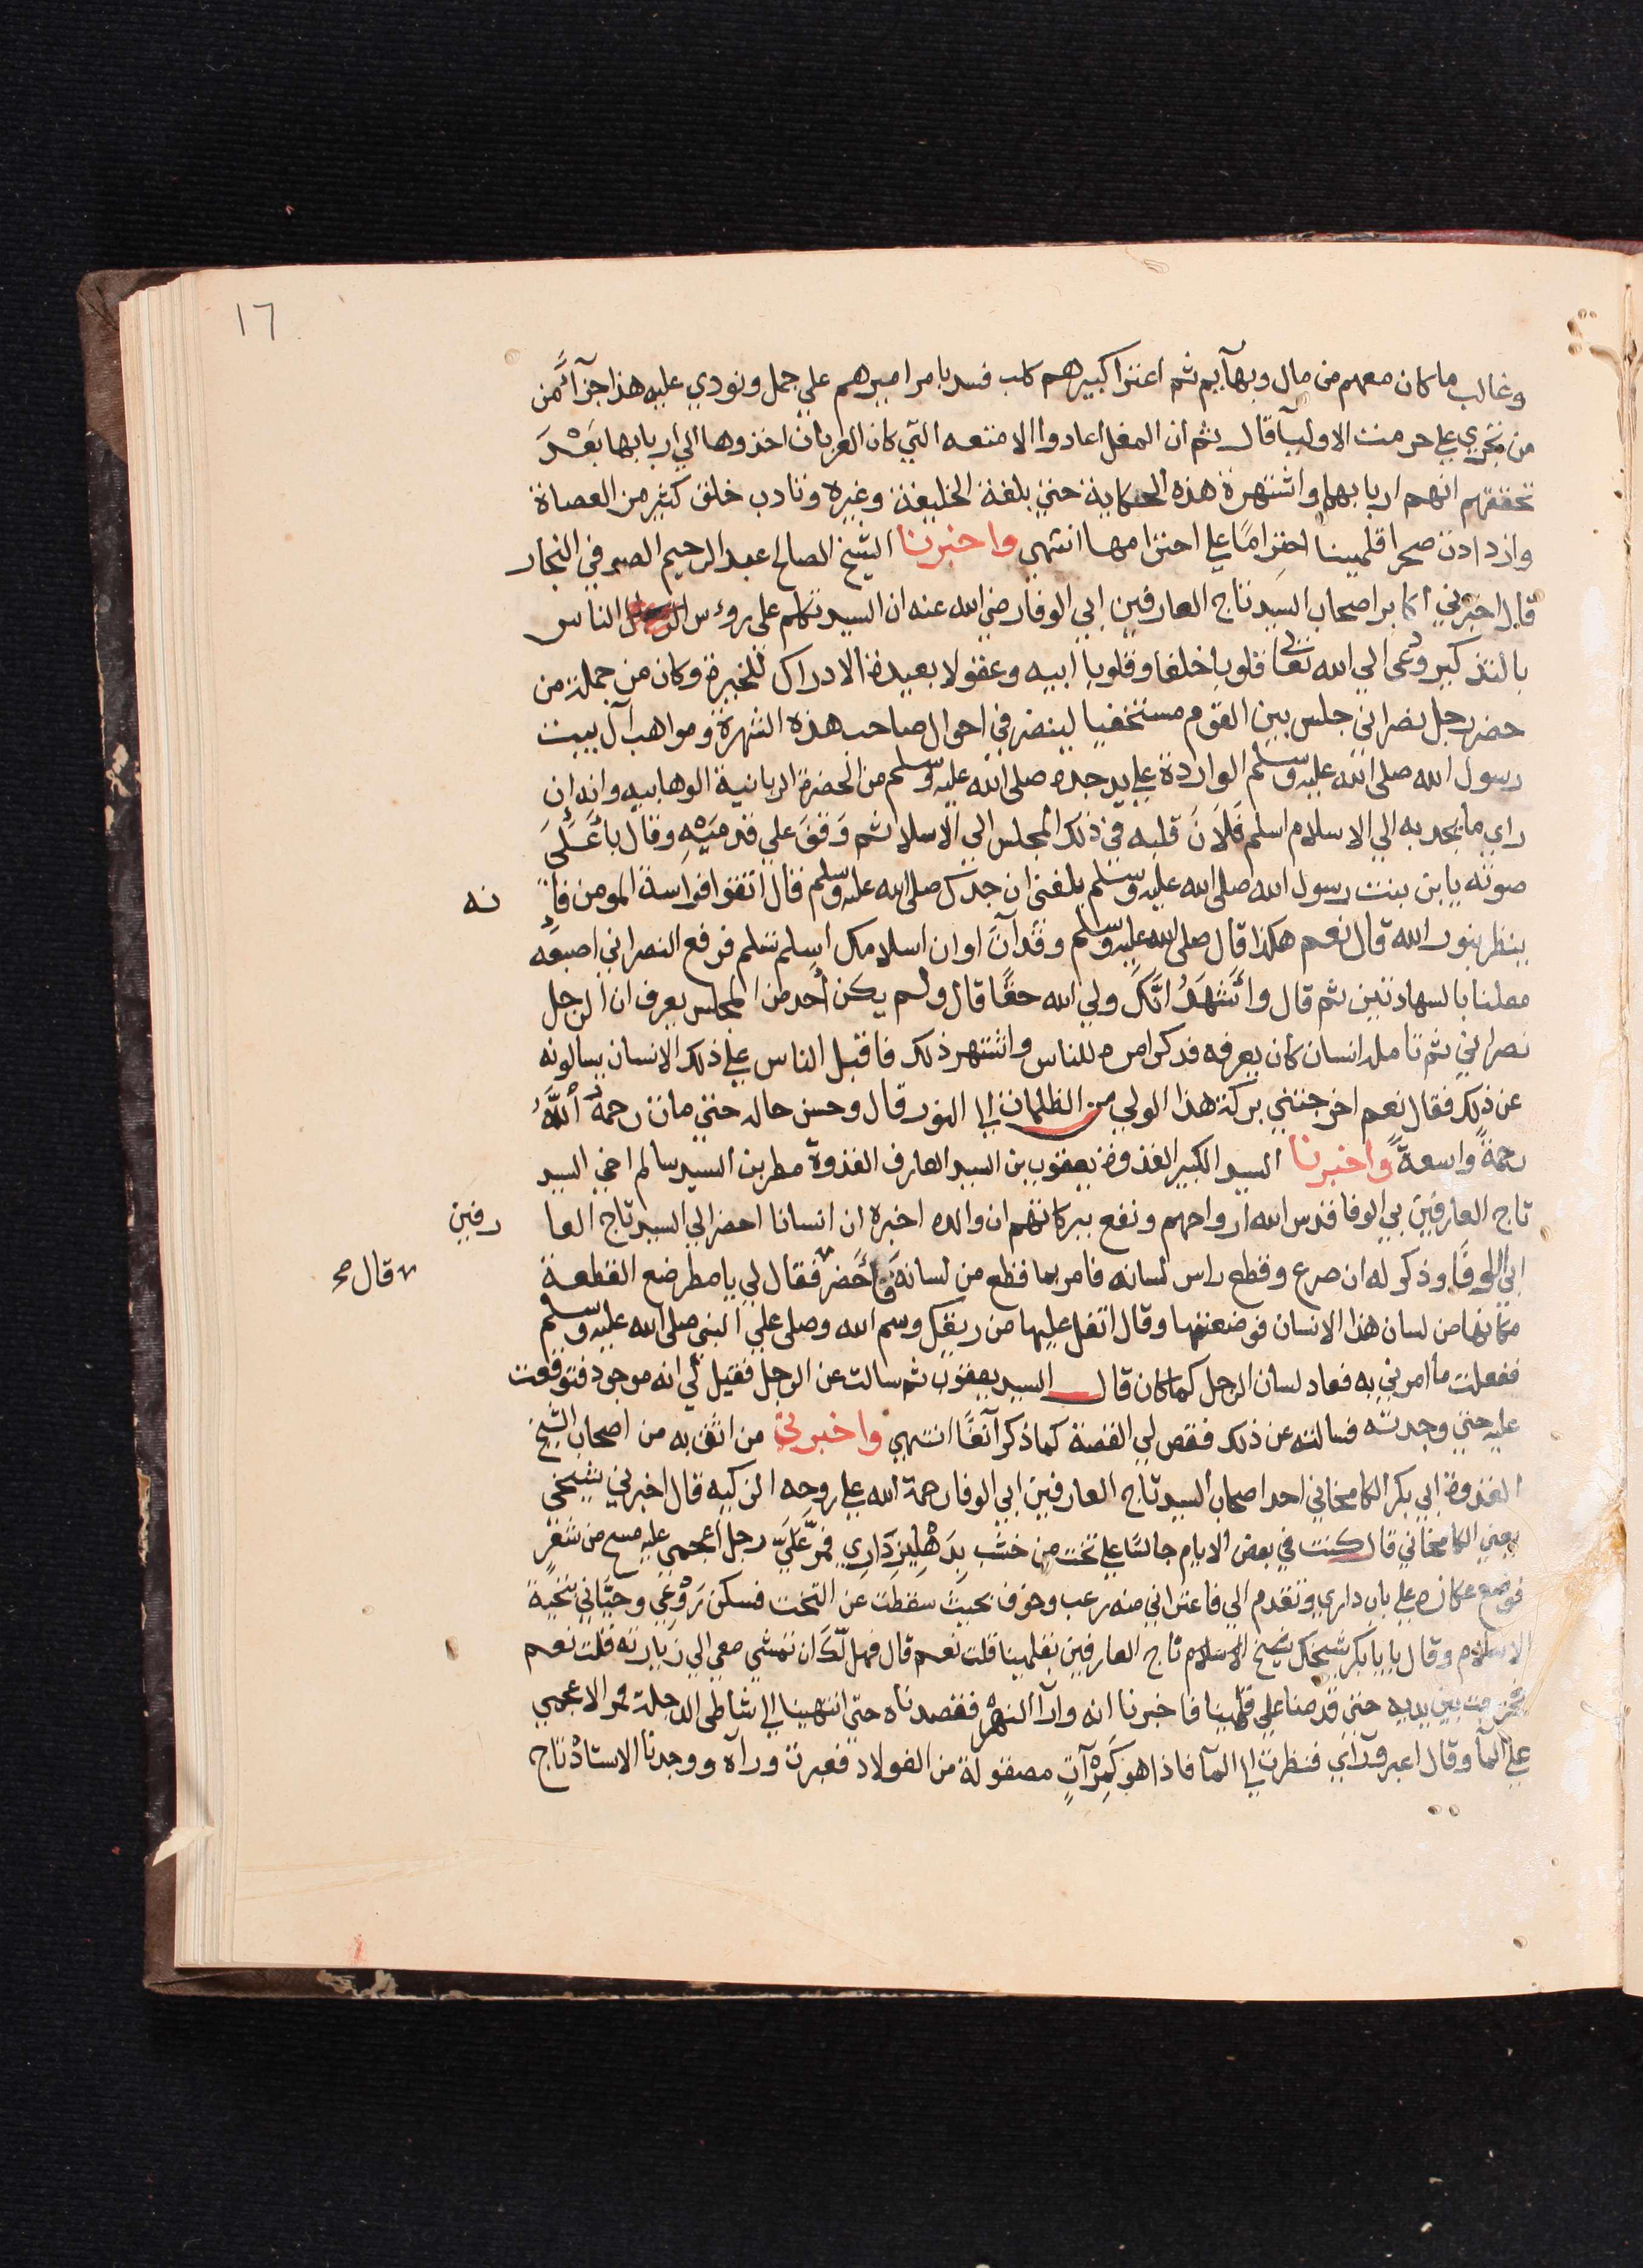 ١٦
وغالب ما كان معهم من مال وبهآيم ثم اعترا كبيرهم كلب فسد بامر اميرهم علي جمل ونودي عليه هذا جزآءُ من
من يجري علي حرمت الاوليآ قال ثم ان المغل اعادوا الامتعه التي كان العربان اخذوها الي اربابها بَعْدَ
تحققهم انهم اربابها واشتهرة هذه الحكاية حتي بلغة الخليفة وغيره وتادب خلق كثير من العصاة
وازدادت صحرا قلمينا احترامًا علي احترامها انتهي واخبرنا الشيخ الصالح عبد الرحيم الصوفي النجار
قال اخبرني اكابر اصحاب السيد تاج العارفين ابي الوفا رضي الله عنه ان السيد تكلم على روءس الناس
بالتذكير ودعى الي الله تعالى قلوبا خلفا وقلوبا ابيه وعقولا بعيدة الادراك للخيرة وكان من جملة من
حضر رجل نصراني جلس بين القوم مستخفيا لينضر في احوال صاحب هذه الشهرة ومواهب آل بيت
رسول الله صلى الله عليه وسلم الواردة علي يد جده صلى الله عليه وسلم من الحضرة الربانية الوهابيه وانه ان
راي ما يجد به الي الاسلام اسلم فَلَانَ قلبه في ذلك المجلس الي الاسلام ثم وَقَفَ علي قدميْهِ وقال باعَلَى
صوته يا بن بنت رسول الله صلى الله عليه وسلم بلغني ان جدك صلى الله عليه وسلم قال اتقوا فراسة المومن فا
نه
ينظر بنور الله قال نعم هكذا قال صلى الله عليه وسلم وقد آن اوان اسلامك اسلم تسلم فرفع النصراني اصبعه
معلنا بالسهادتين ثم قال واَشهَدُ انَّكَ ولي الله حقًا قال ولم يكن أحد من المجلس يعرف ان الرجل
نصراني ثم تامله انسان كان يعرفه فدكر امره للناس واشتهر ذلك فاقبل الناس علي ذلك الانسان يسالونه
عن ذلك فقال نعم اخرجتني بركة هذا الولي من الظلمات الي النور قال وحسن حاله حتي مات رحمهُ اللهُ
رحمةً واسعةً واخبرنا السيد الكبير القدوة يعقوب بن السيد العارف القدوة مطر بن السيد سالم اخي السيد
تاج العارفين بي الوفا قدس الله ارواحهم ونفع ببركاتهم ان والده اخبره ان انسانا احضر الي السيد تاج العا
رفين
ابي الوفا وذكر له ان صرع وقطع راس لسانه فامر بما قطع من لسانه فاَحضر فقال لي يا مطر ضع القطعة
قال صح
مكانها من لسان هذا الانسان فوضعتها وقال اتفل عليها من ريقك وسم الله وصلى علي النبي صلى الله عليه وسلم
ففعلت ما امرني به فعاد لسان الرجل كما كان قال السيد يعقوب ثم سالت عن الرجل فقيل لي انه موجود فتوقعت
عليه حتي وجدته فسالته عن ذلك فقص لي القصة كما ذكر آنفًا انتهي واخبرني من اثق به من اصحاب الشيخ
القدوة ابي بكر الكامخاني احد اصحاب السيد تاج العارفين ابي الوفا رحمة الله علي روحه الزكيه قال اخبرني شيخي
يعني الكامخاني قال كنت في بعض الايام جالسًا علي تخت من خشب بِدَهْلِيزِ دَارِي فمرَّ عَلَيَّ رجل اعجمي عليه مسح من شعْرٍ
فوضع عكازه علي باب داري وتقدم الي فاعتراني منه رعب وخوف بحيث سقطت عن التخت فسكن رَوْعي وحيّاني تحية
الاسلام وقال يابا بكر شيخك شيخ الاسلام تاج العارفين بقلمينا قلت نعم قال فهل لّكَ ان تمشي معي الي زيارته قلت نعم
فخرجت بين يديه حتي قدمنا علي قلمينا فاخبرنا انه ورآ النهر فقصدناه حتى انتهينا الي شاطي الدجلة فمر الاعجمي
علي المآ وقال اعبر ورآي فنظرت الي المآ فاذا هو كَمِرْآتٍ مصقولة من الفولاد فعبرت ورآه ووجدنا الاستاذ تاج